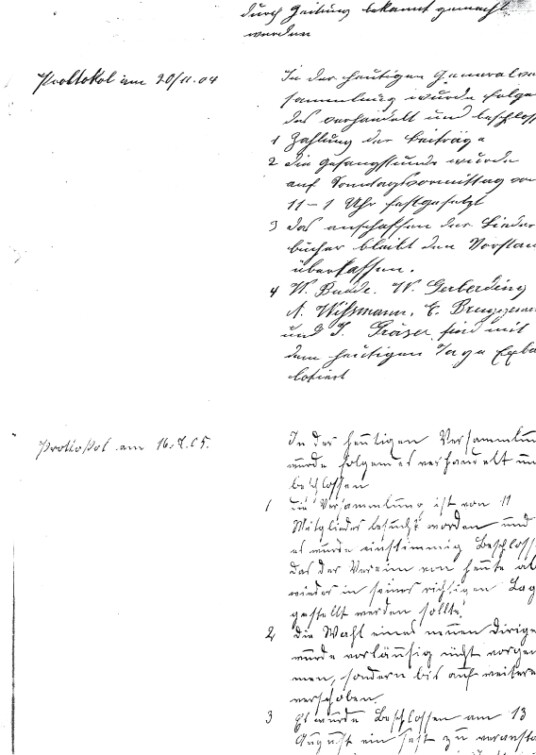 durch Zeitung bekannt gemacht
werden
Prottokol am 20/11.04
In der heutigen Generalver
sammlung wurde folgen
des verhandelt und beschlos
1 Zahlung der Beiträge
2 die Gesangstunde wurde
auf Sonndagsvormittag von
11-1 Uhr festgesetzt
3 das anschaffen der Lieder
bücher bleibt den Vorstan
überlassen.
4 W. Bunde. W. Gerberding
A. Wißmann, E. Bruggman
und J. Gräser sind mit
dem heutigen Tage Exba
lotiert
Prottokol am 16.7.05.
In der heutigen Versammlun
wurde folgendes verhandelt un
beschlossen
1 die Versammlung ist von 11
Mitglieder besucht worden und
es wurde einstimmig Beschloss
das der Verein von heute ab
wieder in seiner richtigen Lag
gestellt werden sollte.
2 die Wahl eines neuen Dirige
wurde vorläufig nicht vorgen
men, sondern bis auf weitere
verschoben
3 Es wurde Beschlossen am 13
August ein Fest zu veransta